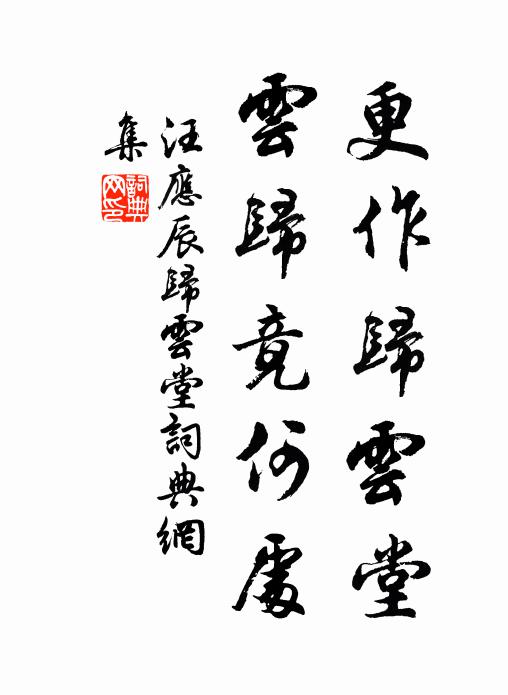 更作歸雲堂
雲歸竟何處
汪應辰歸雲堂詞典網
集
詞典
网印